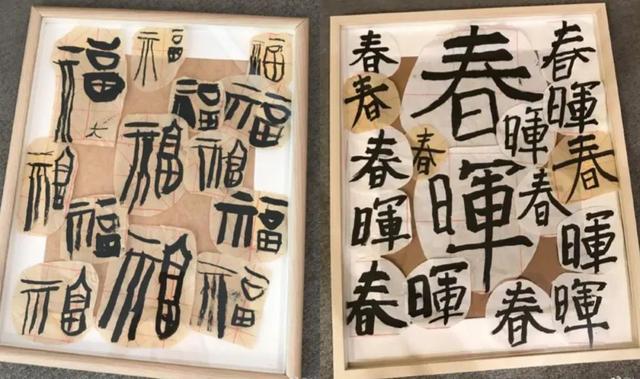 福
福
福
福
福
福
大
福
福
福
福
福
福
福
福
春
春
春
暉
春
暉
春
春
春
春
暉
暉
暉
春
暉
春
暉